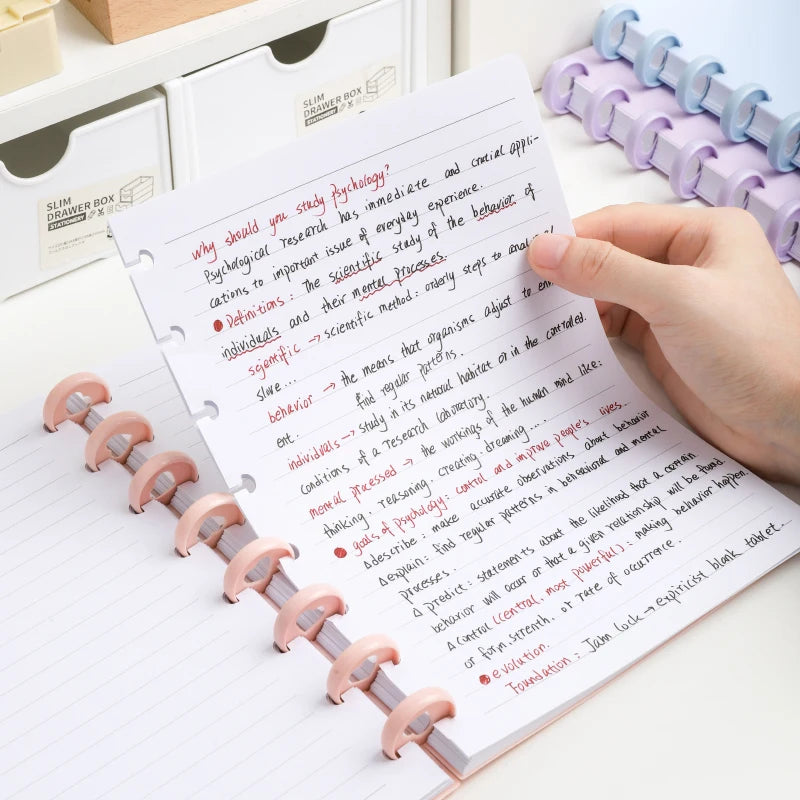 SLIM
DRAWER BOX
STATIONERY
SLIM
DRAWER BOX
STATIONERY
Why should you study Psychology?
Psychological research has immediate and crucial appli-
cations to important issue of everyday experience.
Definitions: The scientific study of the behavior of
individuals and their mental processes.
scientific → scientific method: orderly steps to
slove...
behavior → the means that organisms adjust to
ent. find regular patterns.
individuals → study in its natural habitat or in the controlled.
conditions of a research laboratory.
mental processed → the workings of the human mind like:
thinking. reasoning. creating. dreaming....
goals of psychology: control and improve people's lives.
△describe: make accurate observations about behavior
△explain: find regular patterns in behavioral and mental
processes.
△ predict: statements about the likelihood that a certain
behavior will occur or that a given relationship will be found.
△ control (central, most powerful): making behavior happen.
or form, strenth. or rate of occurrence.
evolution.
Foundation: → expiricist blank tablet...